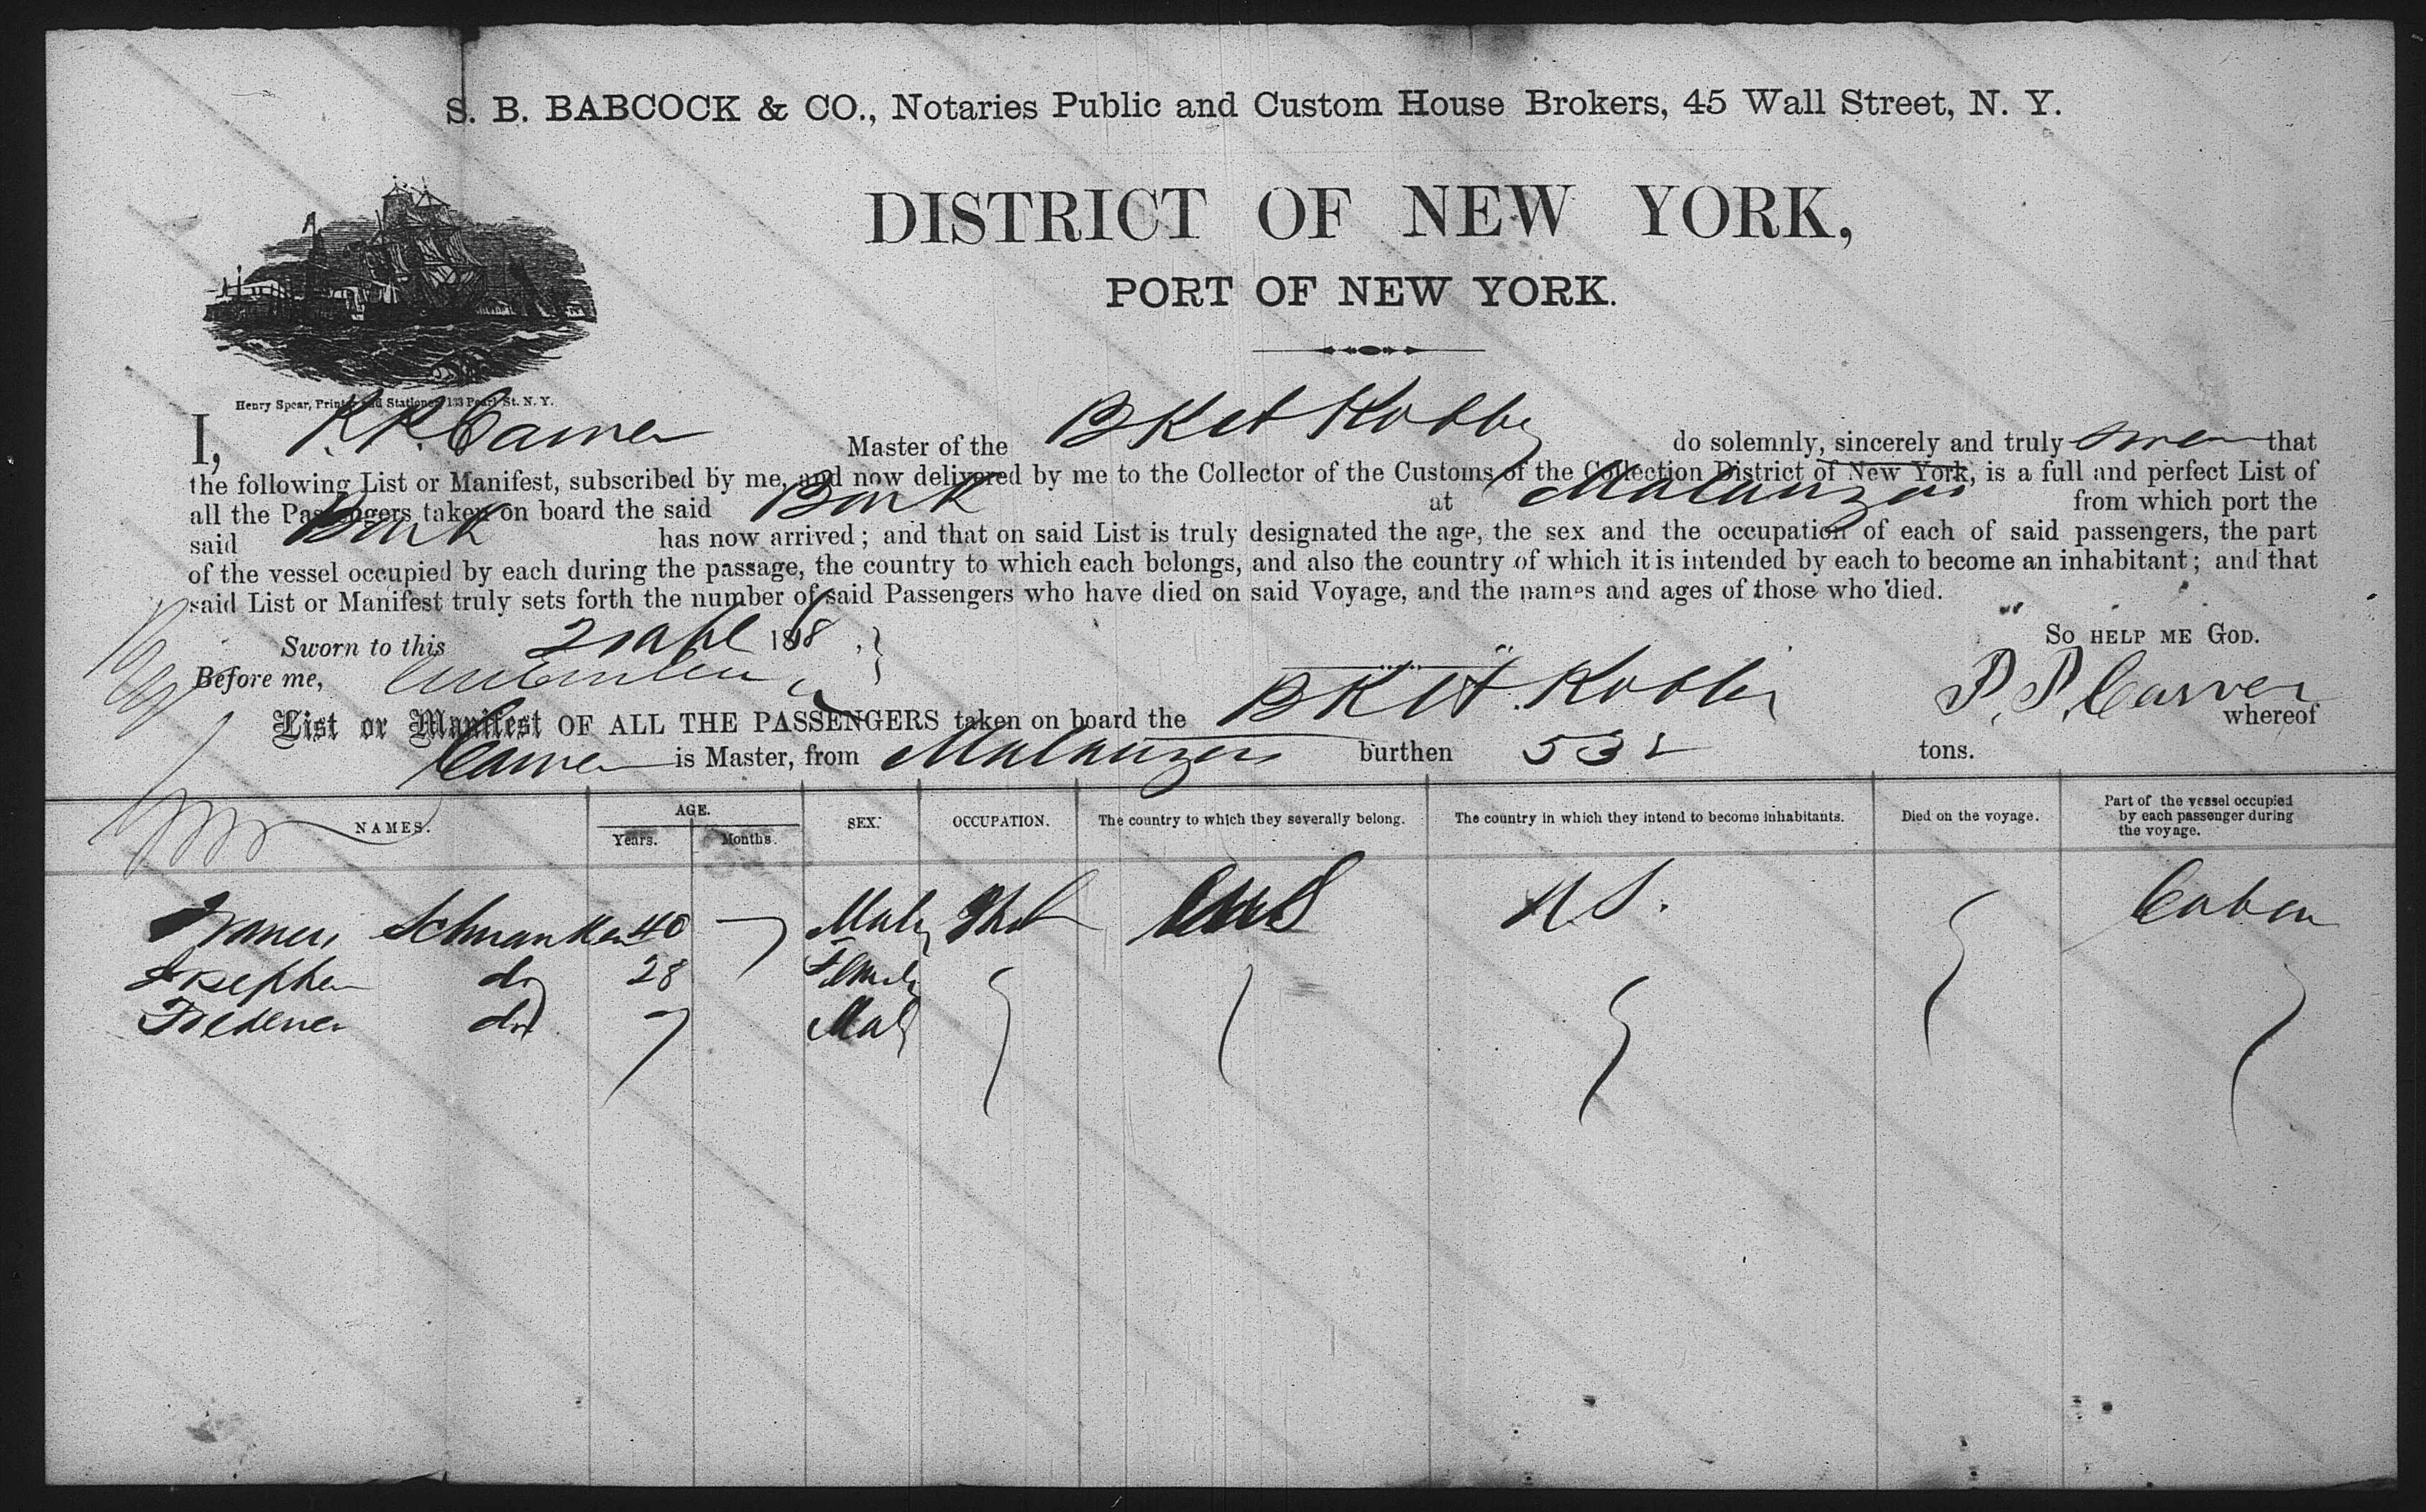 S. B. BABCOCK & CO., Notaries Public and Custom House Brokers, 45 Wall Street, N. Y.
DISTRICT OF NEW YORK,
PORT OF NEW YORK.
Henry Spear, Printer and Stationer, 133 Pearl St. N. Y.
I, Carver Master of the BKet do solemnly, sincerely and truly swear that
the following List or Manifest, subscribed by me, and now delivered by me to the Collector of the Customs of the Collection District of New York, is a full and perfect List of
all the Passengers taken on board the said Bark at Matanzas from which port the
said Bark has now arrived; and that on said List is truly designated the age, the sex and the occupation of each of said passengers, the part
of the vessel occupied by each during the passage, the country to which each belongs, and also the country of which it is intended by each to become an inhabitant; and that
said List or Manifest truly sets forth the number of said Passengers who have died on said Voyage, and the names and ages of those who died.
Sworn to this 1868 SO HELP ME GOD.
Before me, P. P. Carver
List or Manifest OF ALL THE PASSENGERS taken on board the BKet whereof
Carver is Master, from Matanzas burthen 532 tons.
NAMES. AGE. Years. Months. SEX. OCCUPATION. The country to which they severally belong. The country in which they intend to become inhabitants. Died on the voyage. Part of the vessel occupied by each passenger during the voyage.
Schwanken 40 Male U S. Cabin
do 28 Female
do 7 Male